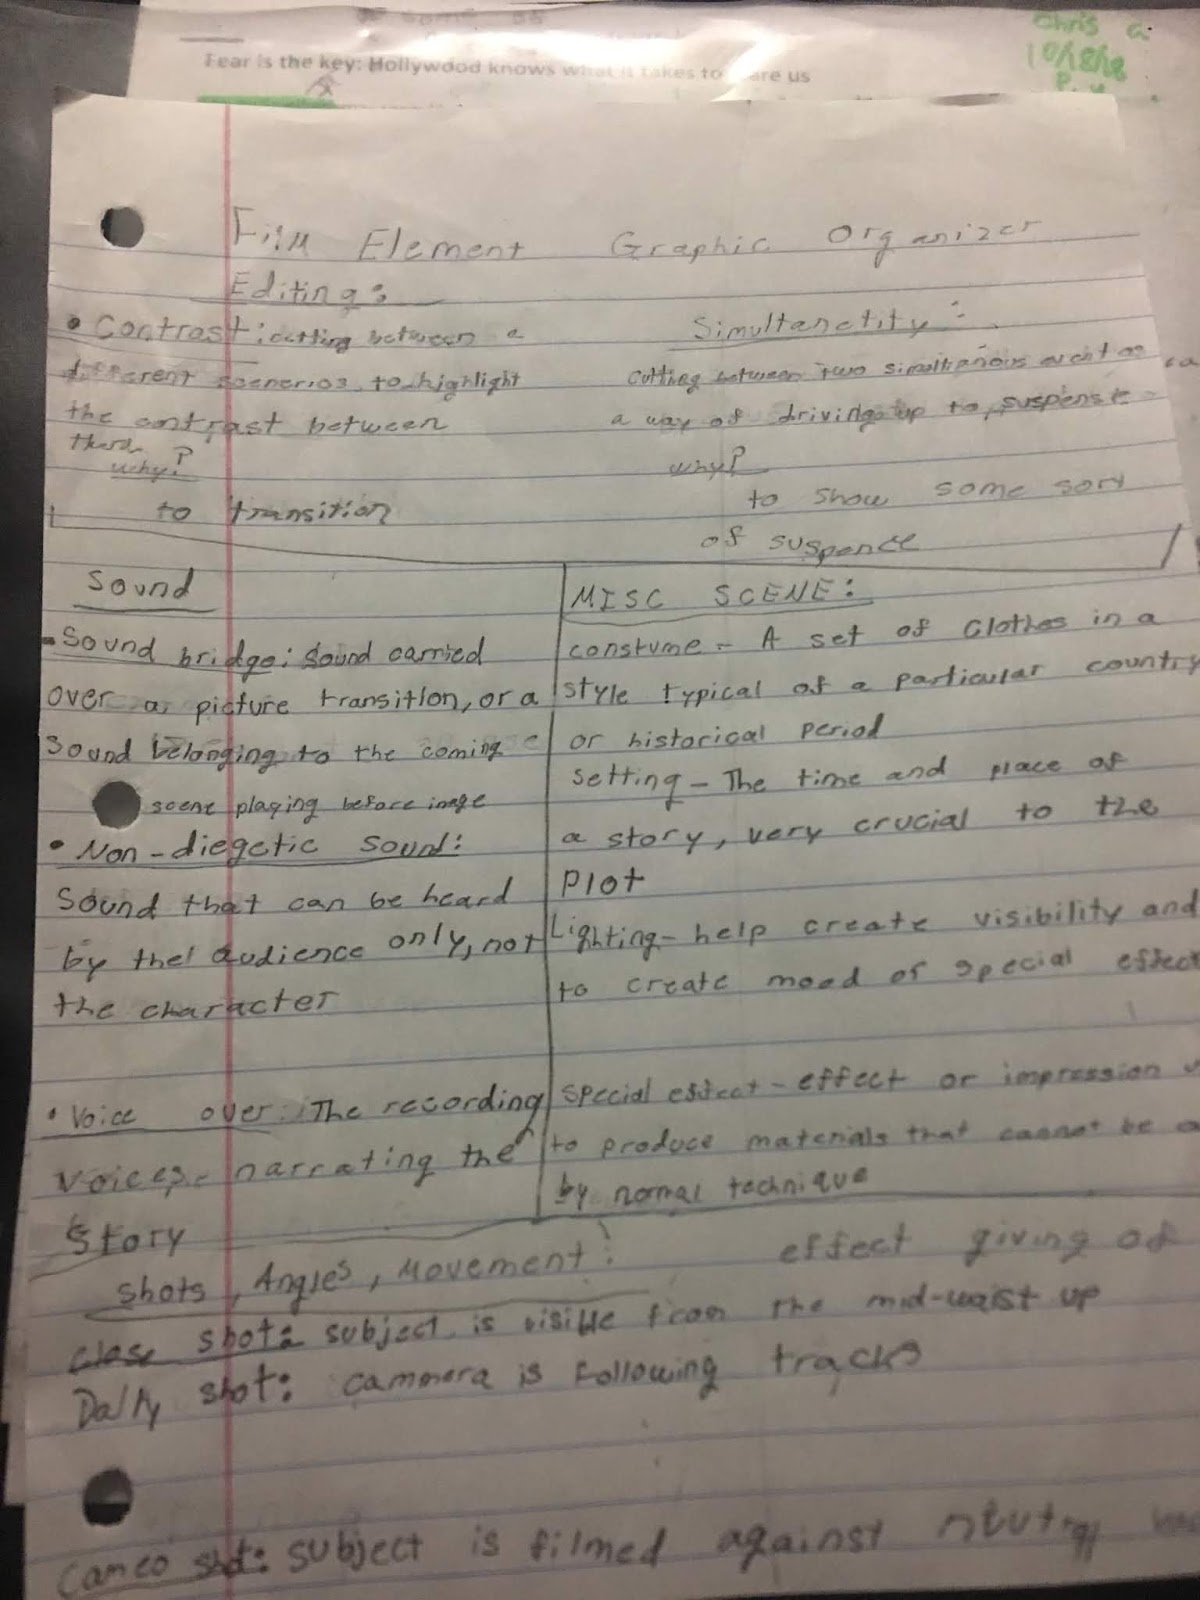 Chris G.
10/18/18
P. 4
Fear is the key: Hollywood knows what it takes to scare us
Film Element Graphic Organizer
Editing:
• Contrast: cutting between a
different scenerios, to highlight
the contrast between
them
why?
to transition
Simultanetity:
cutting between two simultanous event as
a way of driving up to, suspense
why?
to show some sort
of suspence
Sound
• Sound bridge: Sound carried
over a, picture transition, or a
Sound belonging to the coming
scene playing before image
• Non-diegetic Sound:
Sound that can be heard
by the audience only, not
the character
• Voice over: The recording of
voices. narrating the
Story
MISC SCENE:
constume - A set of Clothes in a
style typical of a particular country
or historical period
setting - The time and place of
a story, very crucial to the
Plot
Lighting - help create visibility and
to create mood or special effect
special effect - effect or impression
to produce materials that cannot be
by normal technique
Shots, Angles, Movement: effect giving of
close shot: subject is visible from the mid-waist up
Dolly shot: cammera is following tracks
cameo shot: subject is filmed against